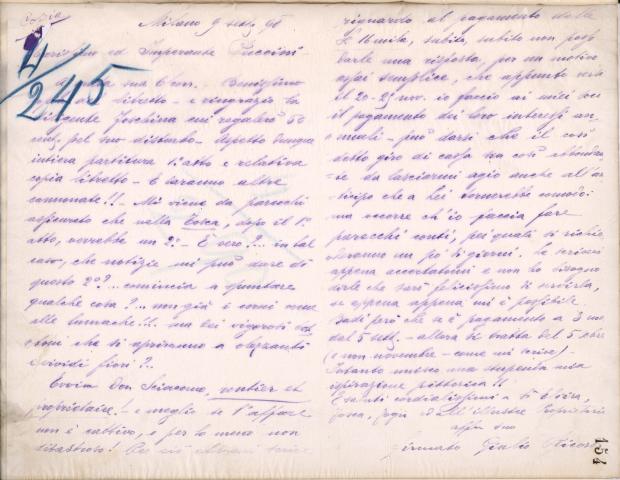 Copia
Milano 9 sett. 98
ed Imperante Puccini
4/245
sua
libretto — e ringrazio la
Foschina cui regalerò 50
cent. pel suo disturbo — Aspetto dunque
intiera partitura 1º atto e relativa
copia libretto — E saranno altre
cannonate!! — Mi viene da parecchi
assicurato che nella Tosca, dopo il 1º
atto, verrebbe un 2º — È vero?... in tal
caso, che notizie mi può dare di
questo 2º?... comincia a spuntare
qualche cosa?... non già i corni come
alle lumache!!.. ma bei vigorosi
che si apriranno a olezzanti
e vividi fiori?..
Evviva Don Giacomo, rentier et
propriétaire! — e meglio se l'affare
non è cattivo, e per lo meno non
disastroso! Per ciò
riguardo al pagamento delle
mila, subito, subito non poss
darle una risposta, per un motivo
assai semplice, che appunto verso
il 20 nov. io faccio ai miei soci
il pagamento dei loro interessi an
nuali — può darsi che il così
detto giro di cassa sia così abbondan
te da lasciarmi agio anche all'an
ticipo che a Lei tornerebbe comodo:
ma occorre ch'io faccia fare
parecchi conti, pei quali si richie
deranno un po' di giorni. Le scriverò
appena accertatomi e non ho bisogno
dirle che sarò felicissimo di servirla,
se appena appena mi è possibile.
Badi però che se è pagamento a 3 mesi
dal 5 sett. — allora si tratta del 5 xbre
(e non novembre — come mi scrive) —
Intanto unisco una stupenda mia
ispirazione pittorica!!
E saluti cordialissimi a Elvira,
Fosca, ed all'Illustre Proprietario
affm suo
firmato Giulio Ricordi
154